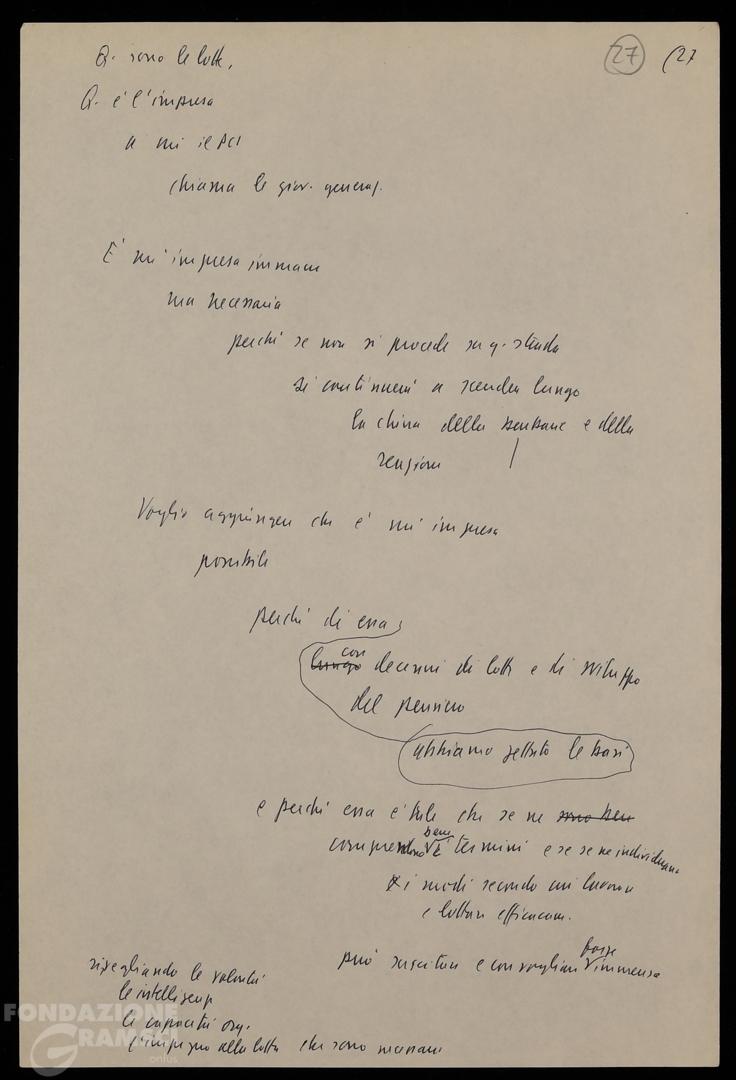 27 (27
Q. sono le lotte,
Q. è l'impresa
a cui il PCI
chiama le giov. generaz.
È un'impresa immane
ma necessaria
perché se non si procede su q. strada
si continuerà a scendere lungo
la china della e della
Voglio aggiungere che è un'impresa
possibile
perché di essa,
lungo con decenni di lotte e di sviluppo
del pensiero
abbiamo gettato le basi
e perché essa è tale che se ne sono ben
comprendono bene i termini e se se ne individuano
i modi secondo cui lavorare
e lottare efficacem.
può suscitare e convogliare forze immense
risvegliando le volontà
le intelligenze
le capacità org.
l'impegno alla lotta che sono necessari
FONDAZIONE
GRAMSCI
onlus